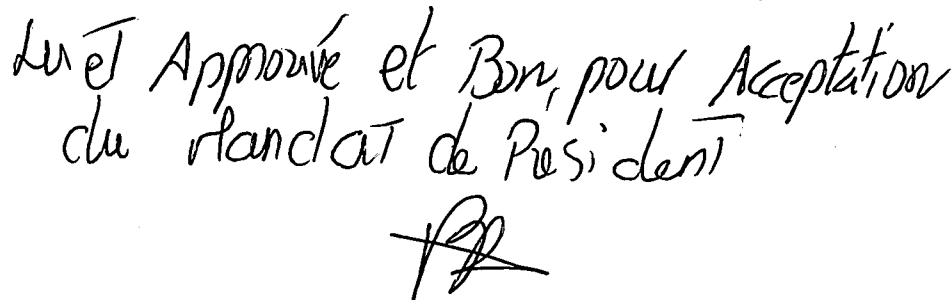 Lu et Approuvé et Bon, pour Acceptation
du Mandat de President